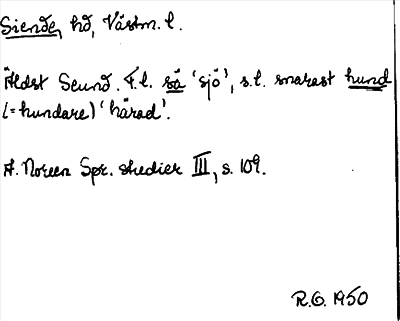 Siende, hd, Västm. l.
Äldst Seund. F.l. sä 'sjö', s.l. snarast hund
(=hundare) 'härad'.
A. Noreen Spr. studier III, s. 109.
R.G. 1950